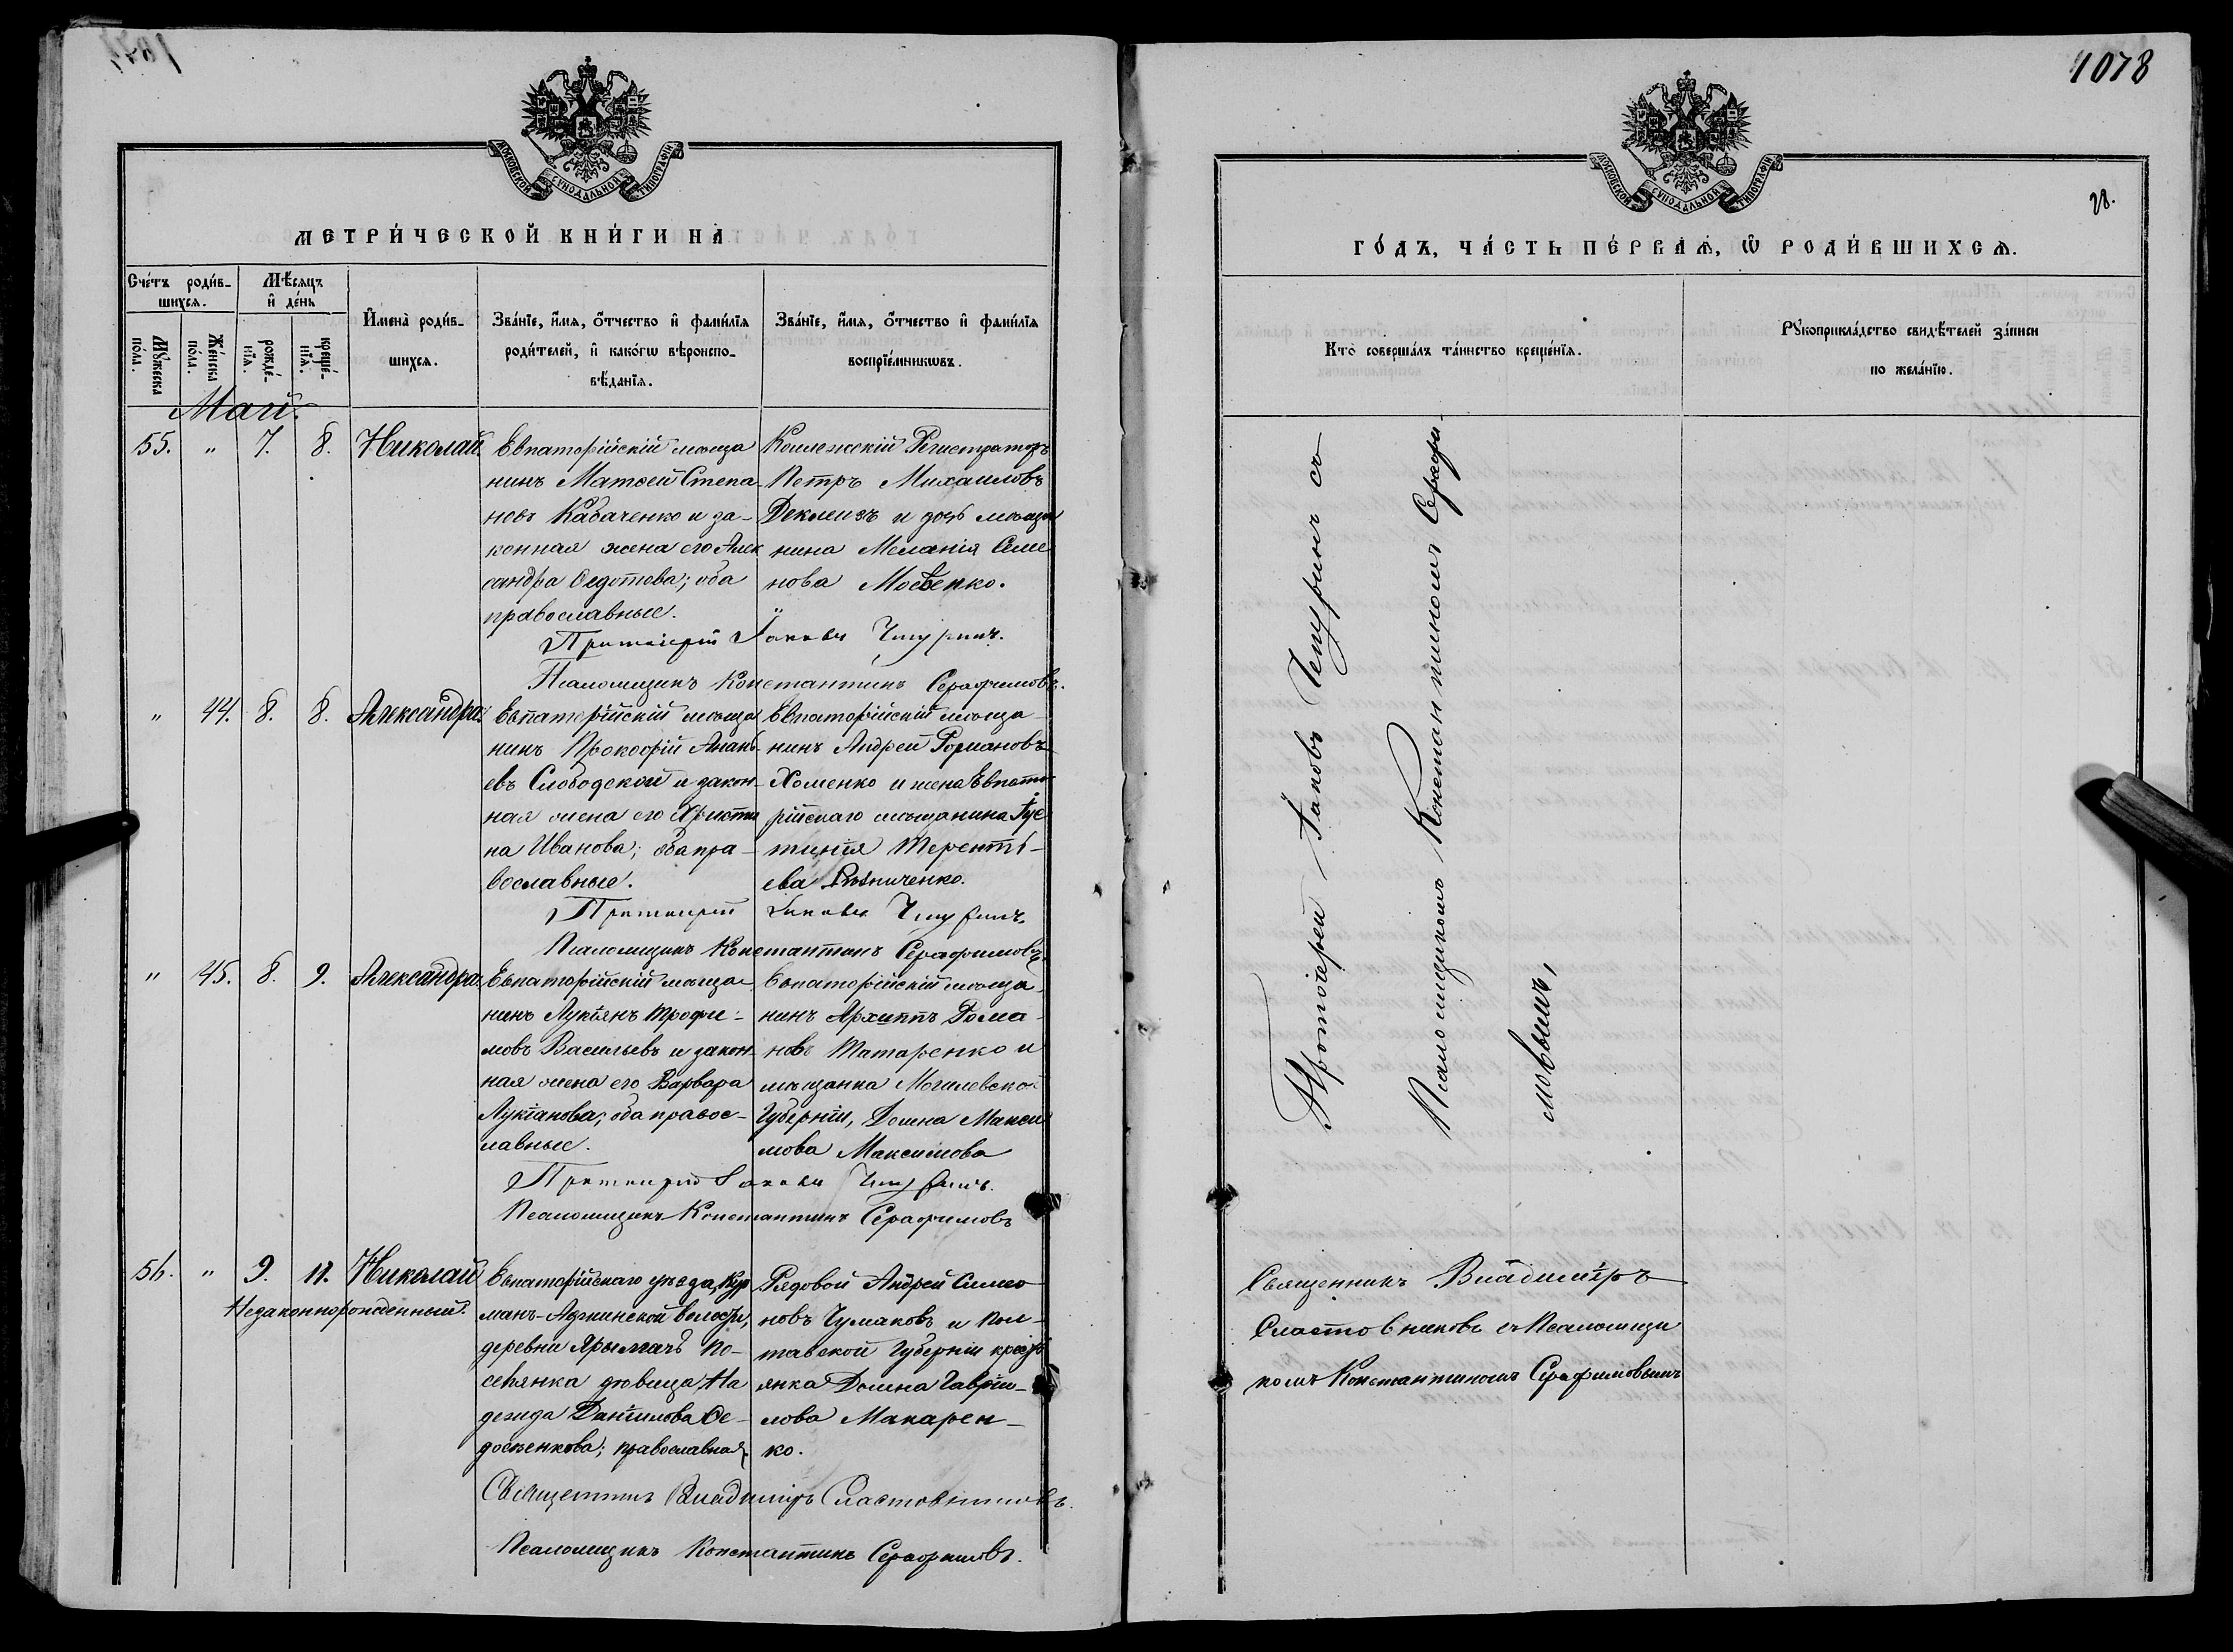 1078
МОСКОВСКОЙ СѴНОДАЛЬНОЙ ТИПОГРАФІИ
МЕТРИ́ЧЕСКОЙ КНИ́ГИ НА
Сче́тъ роди́в-
шихсѧ.
Мѣ́сѧцъ
и҆ де́нь
Мꙋ́жеска
по́ла.
Же́нска
по́ла.
рожде́-
нїѧ.
креще́-
нїѧ.
И҆мена̀ роди́в-
шихсѧ.
Зва́нїе, и҆́мѧ, ѻ҆́тчество и҆ фами́лїѧ
роди́телей, и҆ како́гѡ вѣроиспо-
вѣ́данїѧ.
Зва́нїе, и҆́мѧ, ѻ҆́тчество и҆ фами́лїѧ
воспрїе́мникѡвъ.
Май.
55. " 7. 8. Николай.
Евпаторійскій мѣща
нинъ Матѳей Степа-
новъ Кабаченко и за-
конная жена его Алек
сандра Ѳедотова; оба
православные.
Коллежскій Регистраторъ
Петръ Михаиловъ
и дочь мѣща
нина Меланія Семе
нова
Протоіерей Іаковъ Чепуринъ.
Псаломщикъ Константинъ Серафимовъ.
" 44. 8. 8. Александра.
Евпаторійскій мѣща
нинъ Прокофій Анань-
евъ Слободской и закон-
ная жена его Христи
на Иванова; оба пра-
вославные.
Евпаторійскій мѣща-
нинъ Андрей Романовъ
Хоменко и жена Евпато
рійскаго мѣщанина Іус
тинія Теренть-
ева Рѣзниченко.
Протоіерей Іаковъ Чепуринъ.
Псаломщикъ Константинъ Серафимовъ.
" 45. 8. 9. Александра.
Евпаторійскій мѣща-
нинъ Лукіянъ Трофи-
мовъ Васильевъ и закон-
ная жена его Варвара
Лукіанова; оба правос-
лавные.
Евпаторійскій мѣща-
нинъ Архиппъ Рома-
новъ Татаренко и
мѣщанка Могилевской
Губерніи, Домна Макси
мова Максимова
Протоіерей Іаковъ Чепуринъ.
Псаломщикъ Константинъ Серафимовъ
56. " 9. 11. Николай
Незаконнорожденный.
Евпаторійскаго уѣзда, Кур
манъ-Аджинской волости,
деревни по-
селянка дѣвица На
дежда Даніилова Ѳе-
досѣенкова; православная.
Рядовой Андрей Симео
новъ Чумаковъ и Пол-
тавской Губерніи крестъ
янка Домна Гаврии-
лова Макарен-
ко.
Священникъ Владиміръ Сластовниковъ.
Псаломщикъ Константинъ Серафимовъ.
МОСКОВСКОЙ СѴНОДАЛЬНОЙ ТИПОГРАФІИ
28.
ГО́ДЪ, ЧА́СТЬ ПЕ́РВАѦ, Ѡ҆ РОДИ́ВШИХСѦ.
Кто̀ соверша́лъ та́инство креще́нїѧ.
Рꙋкоприкла́дство свидѣ́телей за́писи
по жела́нїю.
Протоіерей Іаковъ Чепуринъ съ
Псаломщикомъ Константиномъ Серафи-
мовымъ,
Священникъ Владиміръ
Сластовниковъ съ Псаломщи
комъ Константиномъ Серафимовымъ